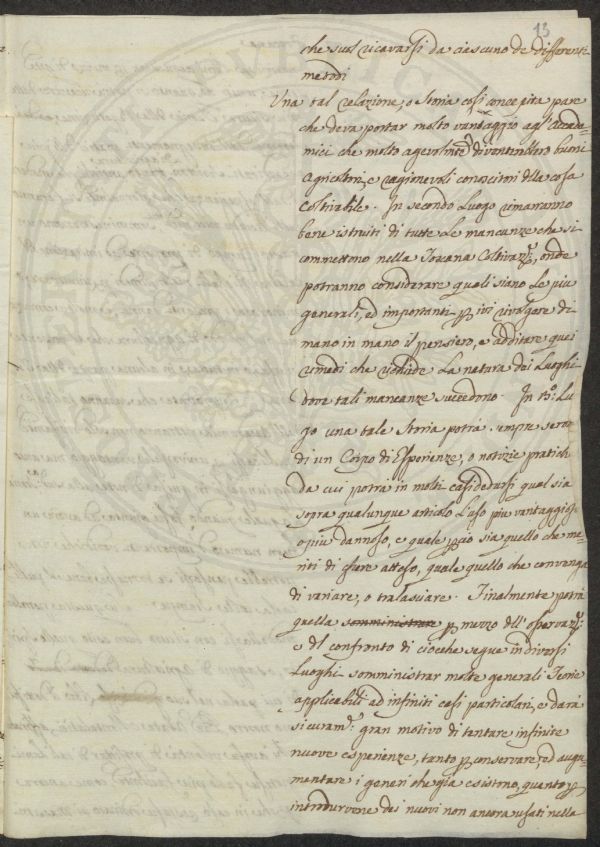 13
che suol ricavarsi da ciascuno de differenti
metodi
Una tal relazione, o Storia così concepita pare
che deva portar molto vantaggio agl'Accade=
mici che molto agevolmte diventerebbero buoni
Agricoltori, e ragionevoli conoscitori della cosa
Coltivabile. In secondo Luogo rimarranno
bene istruiti di tutte Le mancanze che si
commettono nella Toscana Coltivaz:e, onde
potranno considerare quali siano Le più
generali, ed importanti p ivi rivolgere di
mano in mano il pensiero, e additare quei
rimedi che richiede La natura dei Luoghi
dove tali mancanze succedono. In 3o: Lu
go una tale Storia potrà sempre servir
di un Corpo di Esperienze, o notizie pratiche
da cui potrà in molti casi dedursi qual sia
sopra qualunque articolo L'uso più vantaggioso
o più dannoso, e quale pciò sia quello che me=
riti di essere atteso, quale quello che convenga
di variare, o tralasciare. Finalmente potrà
quella somministrare p mezzo dell'osservaz:e
e del confronto di ciocche segue in diversi
Luoghi somministrar molte generali Teorie
applicabili ad infiniti casi particolari, e darà
sicuram:e gran motivo di tentare infinite
nuove esperienze, tanto p conservare, ed aug=
mentare i generi che già esistono, quanto p
introdurvene dei nuovi non ancora usati nella